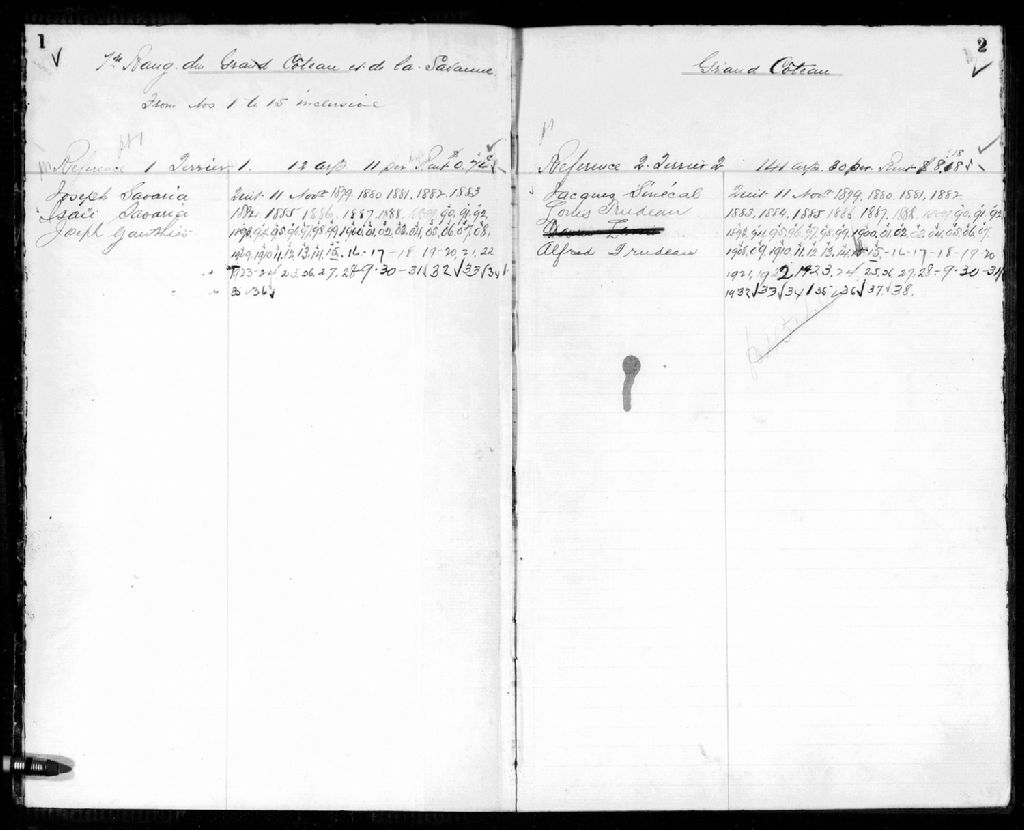 1
1er Rang du Grand Coteau et de la Savanne
From Nos 1 to 15 inclusive
Reference 1 Terrier 1. 12 arp 11 per Rent
Joseph Savaria
Isaïe Savaria
Joseph Gauthier
Quit 11 Novr 1879, 1880, 1881, 1882, 1883
1884, 1885, 1886, 1887, 1888, 1889, 90, 91, 92,
1893, 94, 95, 96, 97, 98, 99, 1900, 01, 02, 03, 04, 05, 06, 07, 08,
1909, 1910, 11, 12, 13, 14, 15, 16-17-18 19-20, 21, 22
23-24 25 26 27, 28-9-30-31 32 33 34
35 36
2
Grand Coteau
Reference 2. Terrier 2 141 arp. 30 per Rent
Jacques Sénécal
Trudeau
Alfred Trudeau
Quit 11 Novr 1879, 1880, 1881, 1882
1883, 1884, 1885 1886 1887, 1888, 1889, 90, 91, 92
1893, 94, 95, 96, 97, 98, 99, 1900, 01, 02, 03, 04, 05, 06, 07,
1908, 09, 1910, 11, 12, 13, 14, 15-16-17-18-19-20
1921, 1922, 1923, 24 25, 26, 27, 28-9-30-31
1932 33 34 35 36 37 38.